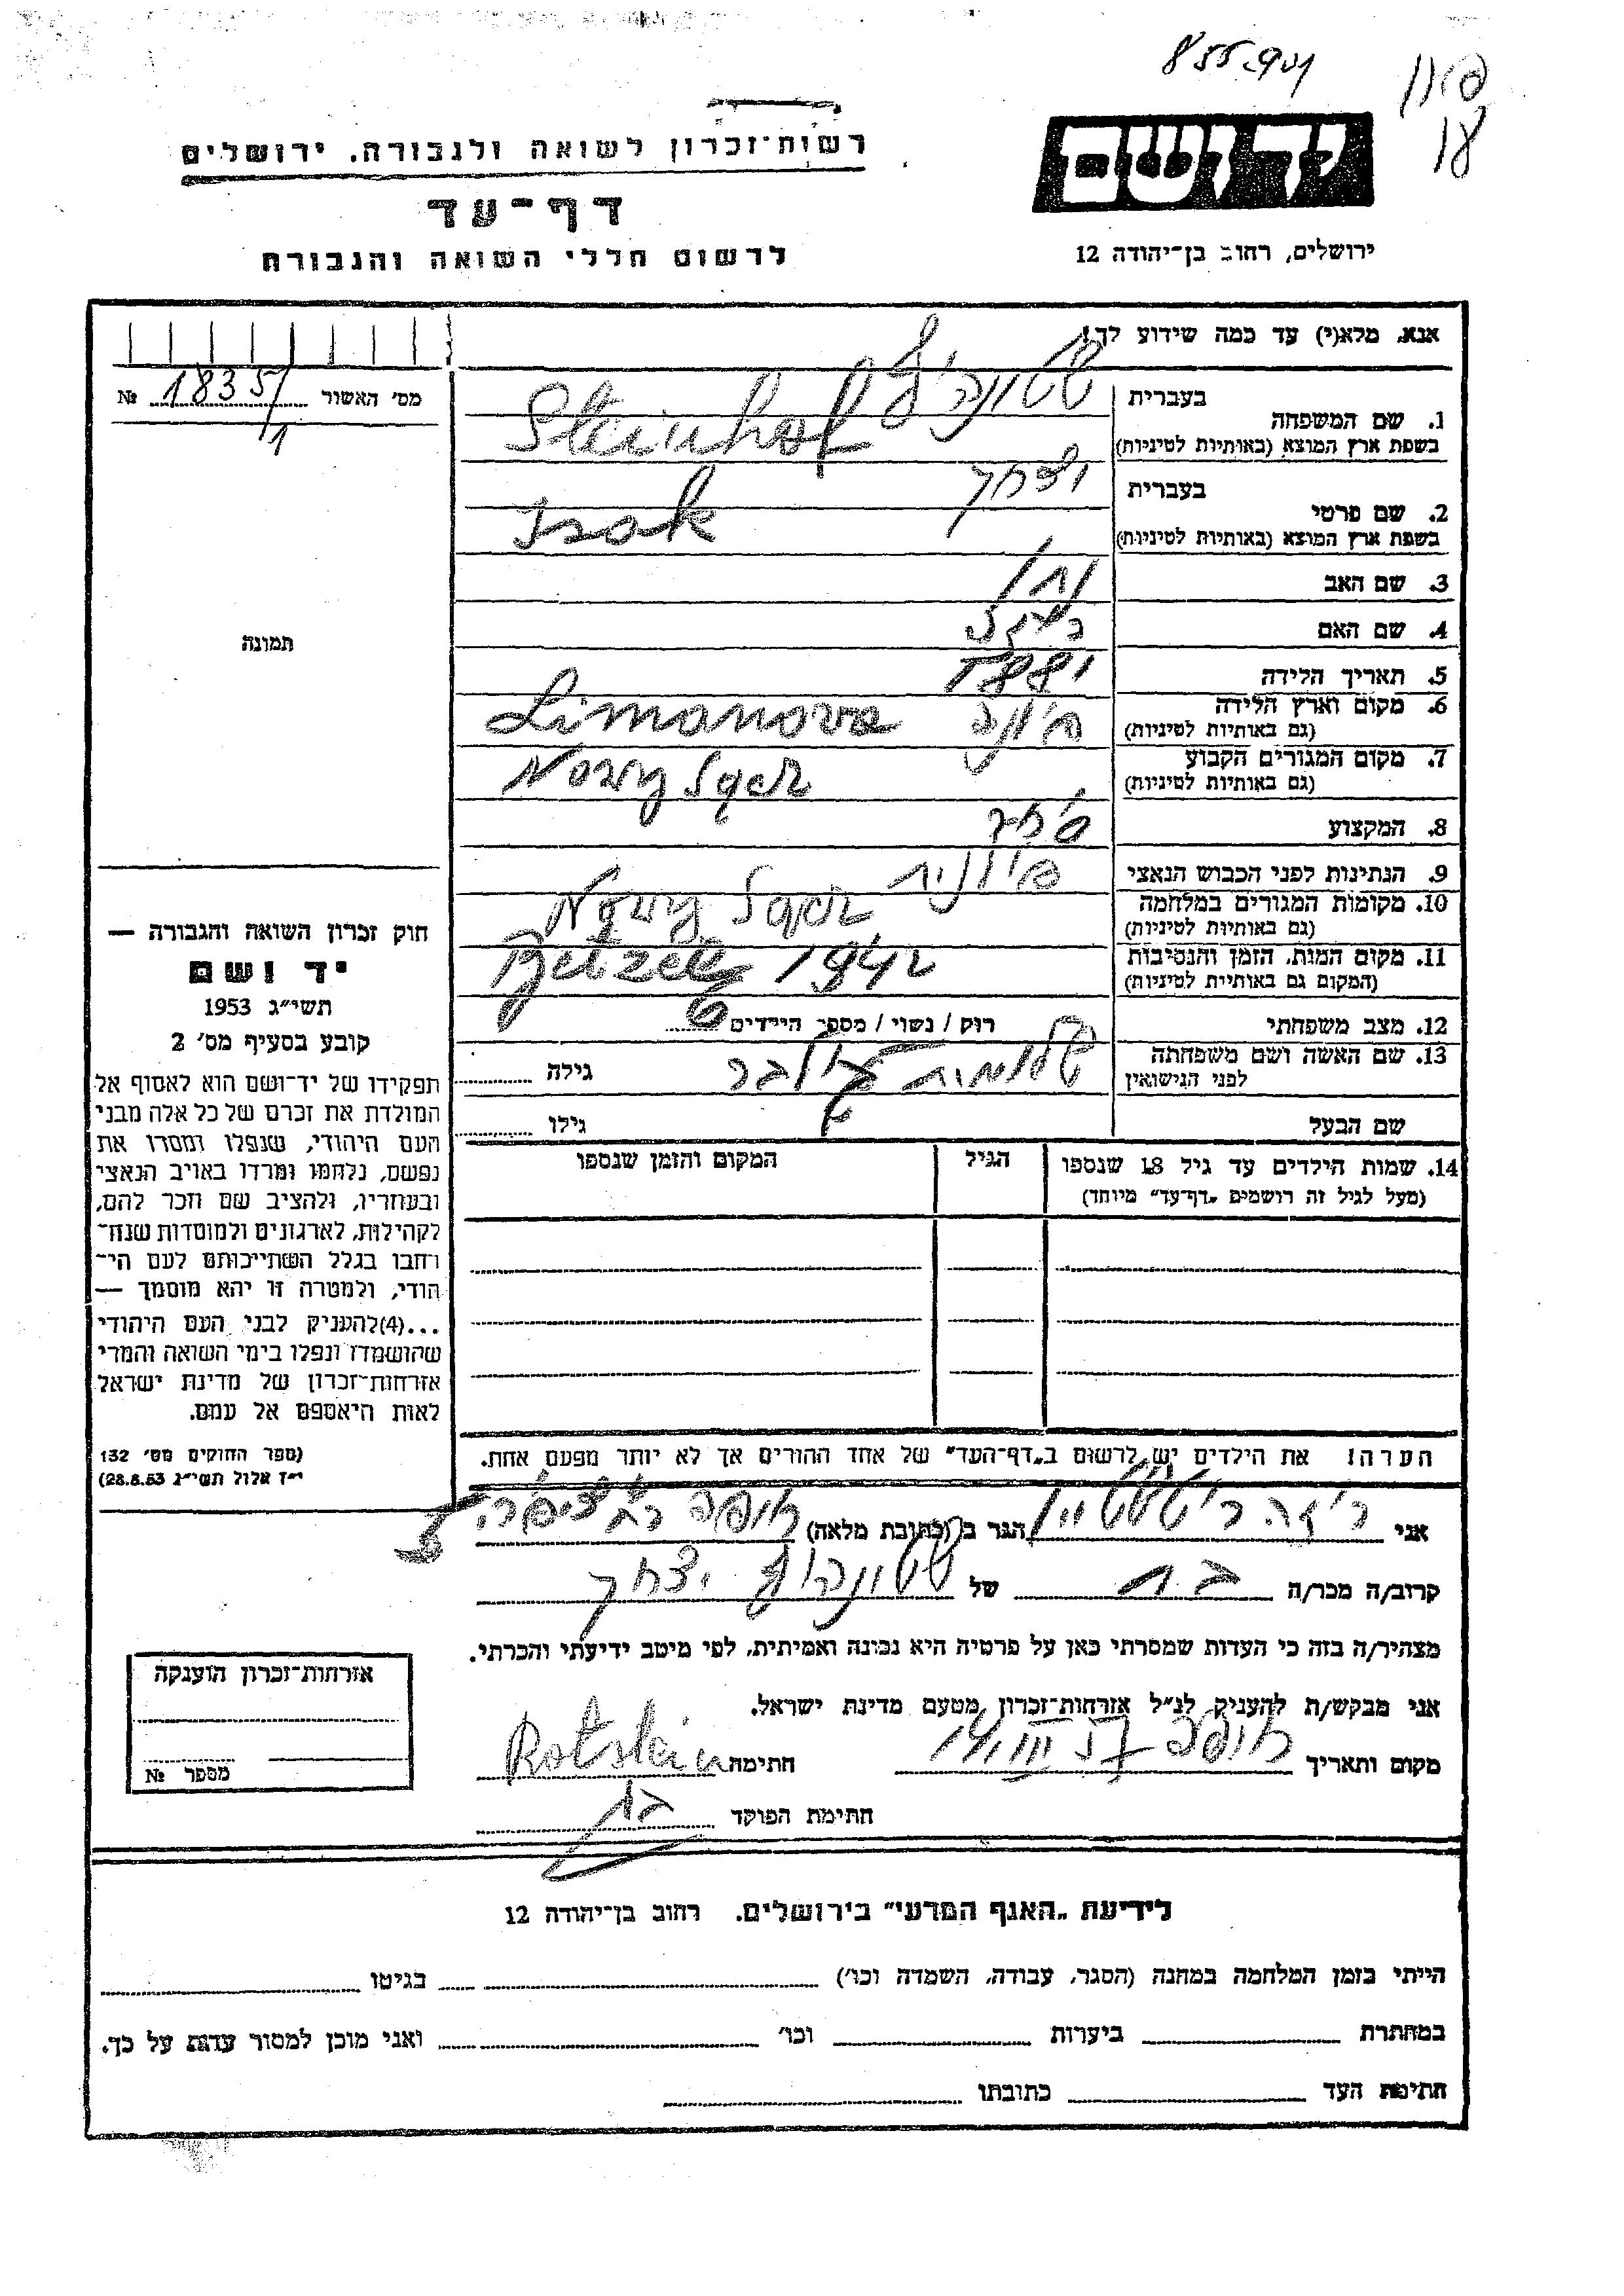 855.901
יד ושם
18
רשות־זכרון לשואה ולגבורה. ירושלים
דף־עד
לרשום חללי השואה והגבורה
ירושלים, רחוב בן־יהודה 12
אנא. מלא(י) עד כמה שידוע לך!
מס׳ האשור № 18351/1
תמונה
1. שם המשפחה בעברית שטונהוף
בשפת ארץ המוצא (באותיות לטיניות) Steinhof
2. שם פרטי בעברית יצחק
בשפת ארץ המוצא (באותיות לטיניות) Isak
3. שם האב
4. שם האם
5. תאריך הלידה 1881
6. מקום וארץ הלידה Limanowa
(גם באותיות לטיניות)
7. מקום המגורים הקבוע Nowy Sącz
(גם באותיות לטיניות)
8. המקצוע סוחר
9. הנתינות לפני הכבוש הנאצי פולנית
10. מקומות המגורים במלחמה Nowy Sącz
(גם באותיות לטיניות)
11. מקום המות, הזמן והנסיבות 1942
(המקום גם באותיות לטיניות)
12. מצב משפחתי רוק / נשוי / מספר הילדים 6
13. שם האשה ושם משפחתה שלומית גילה
לפני הנישואין
שם הבעל גילו
14. שמות הילדים עד גיל 18 שנספו הגיל המקום והזמן שנספו
(מעל לגיל זה רושמים „דף־עד״ מיוחד)
הערה! את הילדים יש לרשום ב„דף־העד״ של אחד ההורים אך לא יותר מפעם אחת.
חוק זכרון השואה והגבורה —
יד ושם
תשי״ג 1953
קובע בסעיף מס׳ 2
תפקידו של יד־ושם הוא לאסוף אל
המולדת את זכרם של כל אלה מבני
העם היהודי, שנפלו ומסרו את
נפשם, נלחמו ומרדו באויב הנאצי
ובעוזריו, ולהציב שם וזכר להם,
לקהילות, לארגונים ולמוסדות שנח־
רבו בגלל השתייכותם לעם הי־
הודי, ולמטרה זו יהא מוסמך —
...(4)להעניק לבני העם היהודי
שהושמדו ונפלו בימי השואה והמרי
אזרחות־זכרון של מדינת ישראל
לאות היאספם אל עמם.
(ספר החוקים מס׳ 132
י״ז אלול תשי״ג 28.8.53)
אני הגר ב (כתובת מלאה) חיפה
קרוב/ה מכר/ה בת של שטונהוף יצחק
מצהיר/ה בזה כי העדות שמסרתי כאן על פרטיה היא נכונה ואמיתית, לפי מיטב ידיעתי והכרתי.
אני מבקש/ת להעניק לנ״ל אזרחות־זכרון מטעם מדינת ישראל.
מקום ותאריך חיפה 14.III.57 חתימה Rotstein
חתימת הפוקד
אזרחות־זכרון הוענקה
מספר №
לידיעת „האגף המדעי״ בירושלים. רחוב בן־יהודה 12
הייתי בזמן המלחמה במחנה (הסגר, עבודה, השמדה וכו׳) בגיטו
במחתרת ביערות וכו׳ ואני מוכן למסור עדות על כך.
חתימת העד כתובתו